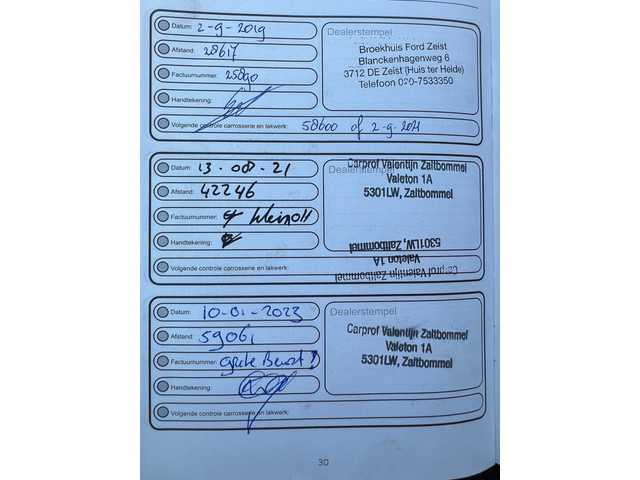 Datum: 2-9-2019
Dealerstempel
Afstand: 28617
Broekhuis Ford Zeist
Blanckenhagenweg 6
3712 DE Zeist (Huis ter Heide)
Telefoon 030-7533350
Factuurnummer: 25890
Handtekening:
Volgende controle carrosserie en lakwerk: 58600 of 2-9-2021
Datum: 13-08-21
Dealerstempel
Carprof Valentijn Zaltbommel
Valeton 1A
5301LW, Zaltbommel
Afstand: 42246
Factuurnummer:
Handtekening:
5301LW, Zaltbommel
Valeton 1A
Carprof Valentijn Zaltbommel
Volgende controle carrosserie en lakwerk:
Datum: 10-01-2023
Dealerstempel
Afstand: 59061
Carprof Valentijn Zaltbommel
Valeton 1A
5301LW, Zaltbommel
Factuurnummer: grote Beurt!
Handtekening:
Volgende controle carrosserie en lakwerk:
30